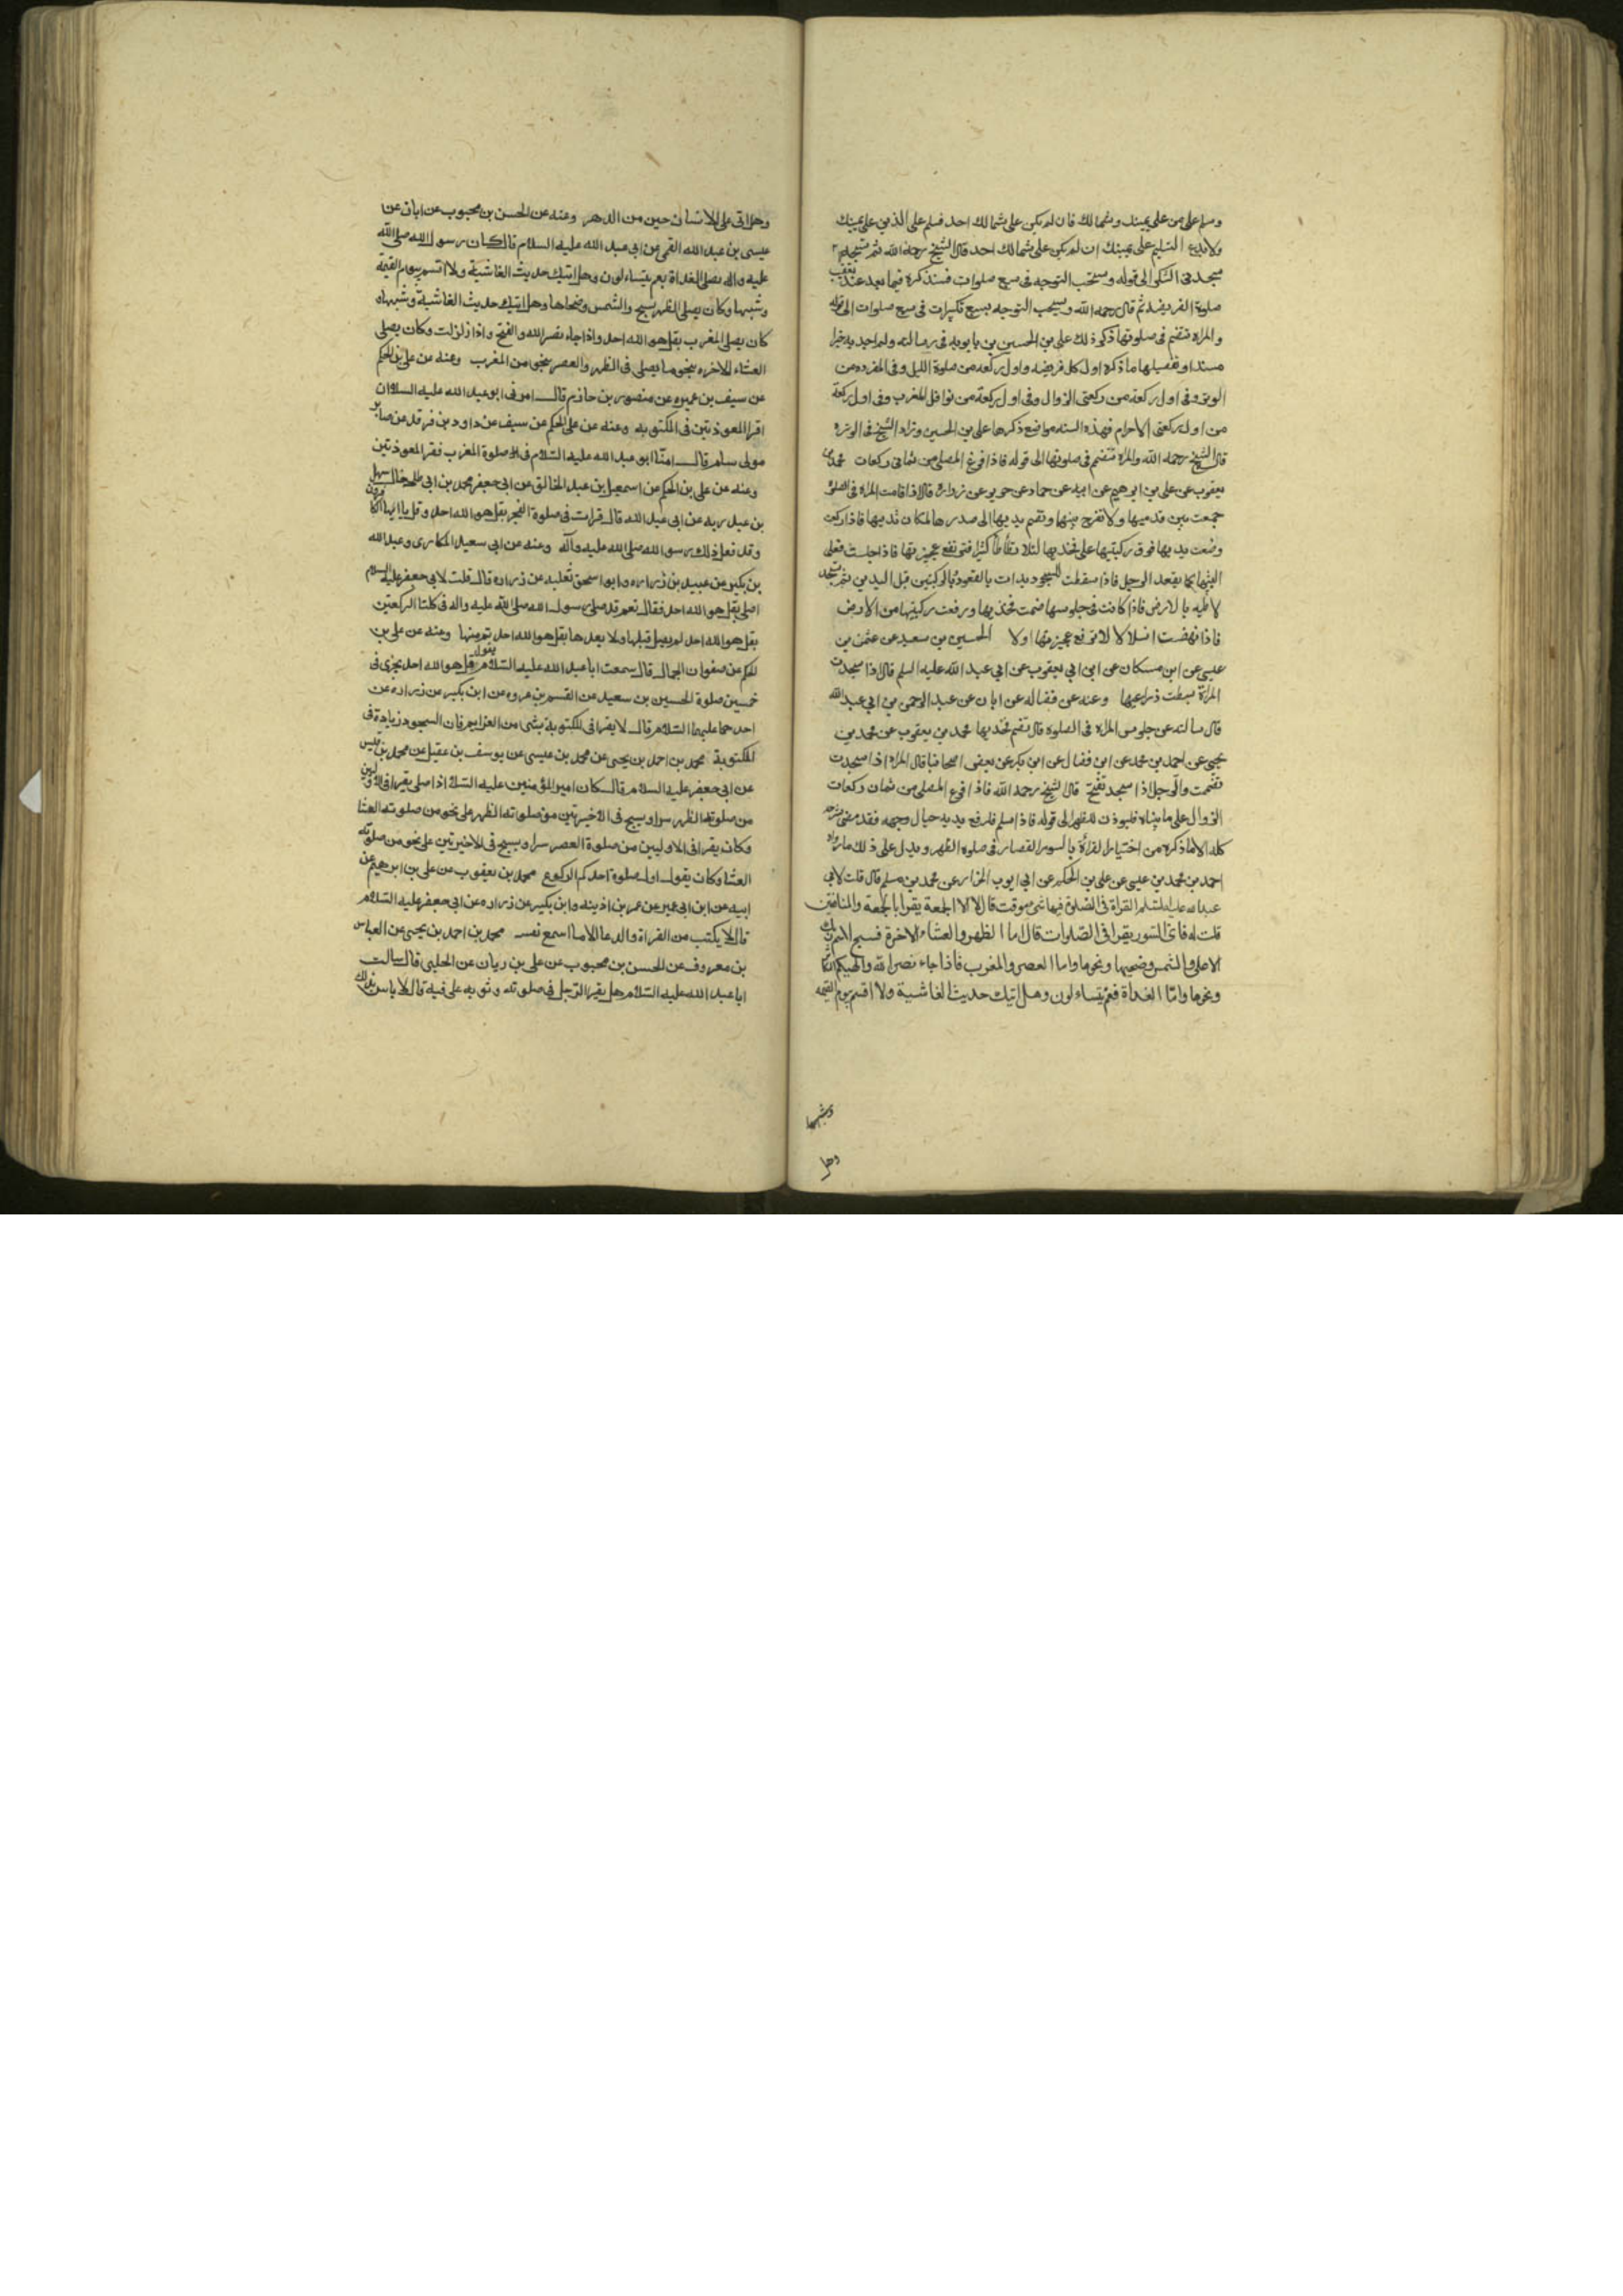 وسلم على من على يمينك وشمالك فان لم يكن على شمالك احد فسلم على الذين على يمينك
ولا تدع التسليم على يمينك ان لم يكن على شمالك احد قال الشيخ رحمه الله ثم تسجد
سجدتى الشكر الى قوله ويستحب التوجه فى سبع صلوات فسنذكره فيما بعد عند تعقيب
صلوة الفريضه ثم قال رحمه الله ويستحب التوجه بسبع تكبيرات فى سبع صلوات الى قوله
والمراه تنضم فى صلوتها ذكر ذلك على بن الحسين بن بابويه فى رسالته ولم اجد به خبرا
مسندا وتفصيلها ما ذكره اول كل فريضه واول ركعه من صلوة الليل وفى المفرده من
الوتر وفى اول ركعة من ركعتى الزوال وفى اول ركعة من نوافل المغرب وفى اول ركعة
من اول ركعتى الاحرام فهذه السته مواضع ذكرها على بن الحسين وزاد الشيخ فى الوتره
قال الشيخ رحمه الله والمراه تنضم فى صلوتها الى قوله فاذا فرغ المصلى من ثمانى ركعات محمد بن
يعقوب عن على بن ابرهيم عن ابيه عن حماد عن حريز عن زرارة قال اذا قامت المراه فى الصلوه
جمعت بين قدميها ولا تفرج بينها وتضم يديها الى صدرها لمكان ثدييها فاذا ركعت
وضعت يديها فوق ركبتيها على فخذيها لئلا تطأطأ كثيرا فترتفع عجيزتها فاذا جلست فعلى
اليتيها كما يقعد الرجل فاذا سقطت للسجود بدات بالقعود بالركبتين قبل اليدين ثم تسجد
لاطئه بالارض فاذا كانت فى جلوسها ضمت فخذيها ورفعت ركبتيها من الارض
فاذا نهضت انسلالا لا ترفع عجيزتها اولا الحسين بن سعيد عن عثمن بن
عيسى عن ابن مسكان عن ابن ابي يعفوب عن ابي عبد الله عليه السلم قال اذا سجدت
المراة بسطت ذراعيها وعنه عن فضاله عن ابان عن عبد الرحمن بن ابي عبد الله
قال سالته عن جلوس المراه فى الصلوه قال تضم فخذيها محمد بن يعقوب عن محمد بن
يحيى عن احمد بن محمد عن ابن فضال عن ابن بكر عن بعض اصحابنا قال المراه اذا سجدت
تضممت والرجل اذا سجد تفتح قال الشيخ رحمه الله فاذا فرغ المصلى من ثمان ركعات
الزوال على ما بيناه فليوذن للظهر الى قوله فاذا سلم فارفع يديه حيال وجهه فقد مضى شرحه
كله الا ما ذكره من اختيار القراة بالسور القصار فى صلوه الظهر ويدل على ذلك ما رواه
احمد بن محمد بن عيسى عن على بن الحكم عن ابي ايوب الخزاز عن محمد بن مسلم قال قلت لابي
عبد الله عليه السلم القراة فى الصلوة فيها شئ موقت قال لا الا الجمعة يقرا بالجمعة والمنافقين
قلت له فاى السور يقرا فى الصلوات قال اما الظهر والعشاء الاخرة فسبح اسم ربك
الاعلى والشمس وضحيها ونحوها واما العصر والمغرب فاذا جاء نصر الله والهيكم التكاثر
ونحوها واما الغداة فعم يتساءلون وهل اتيك حديث الغاشية ولا اقسم بيوم القيمه
وشبهها
وهل
وهل اتى على الانسان حين من الدهر وعنه عن الحسن بن محبوب عن ابان عن
عيسى بن عبد الله القمى عن ابى عبد الله عليه السلام قال كان رسول الله صلى الله
عليه واله يصلى الغداة بعم يتساءلون وهل اتيك حديث الغاشية ولا اقسم بيوم القيمة
وشبهها وكان يصلى الظهر بسبح والشمس وضحاها وهل اتيك حديث الغاشية وشبهها و
كان يصلى المغرب بقل هو الله احد واذا جاء نصر الله والفتح واذا زلزلت وكان يصلى
العشاء الاخره بنحو ما يصلى فى الظهر والعصر بنحو من المغرب وعنه عن على بن الحكم
عن سيف بن عميره عن منصور بن حازم قال امرنى ابو عبد الله عليه السلام ان
اقرا المعوذتين فى المكتوبه وعنه عن على الحكم عن سيف عن داود بن فرقد عن صابر
مولى بسام قال امنا ابو عبد الله عليه السلام فى صلوة المغرب فقرا المعوذتين
وعنه عن على بن الحكم عن اسمعيل بن عبد الخالق عن ابى جعفر محمد بن ابى طلحه خال سهل
بن عبد ربه عن ابى عبد الله قال قرات فى صلوة الفجر بقل هو الله احد وقل يا ايها الكافرون
وقد فعل ذلك رسول الله صلى الله عليه وآله وعنه عن ابى سعيد المكارى وعبد الله
بن بكير عن عبيد بن زراره وابو اسحق ثعلبه عن زراره قال قلت لابى جعفر عليه السلام
اصلى بقل هو الله احد فقال نعم قد صلى رسول الله صلى الله عليه واله فى كلتا الركعتين
بقل هو الله احد لم يصل قبلها ولا بعدها بقل هو الله احد بتم منها وعنه عن على بن
الحكم عن صفوان الجمال قال سمعت ابا عبد الله عليه السلام يقول قل هو الله احد يجزى فى
خمسين صلوة الحسين بن سعيد عن القسم بن عروه عن ابن بكير عن زراره عن
احدهما عليهما السلام قال لا يقرا فى المكتوبة بشئ من العزايم فان السجود زيادة فى
المكتوبة محمد بن احمد بن يحيى عن محمد بن عيسى عن يوسف بن عقيل عن محمد بن قيس
عن ابى جعفر عليه السلام قال كان امير المؤمنين عليه السلام اذا صلى يقرا فى الاوليين
من صلوته الظهر سرا ويسبح فى الاخيرتين من صلوته الظهر على نحو من صلوته العشا
وكان يقرا فى الاوليين من صلوة العصر سرا ويسبح فى الاخيرتين على نحو من صلوته
العشا وكان يقول اول صلوة احدكم الركوع محمد بن يعقوب عن على بن ابرهيم عن
ابيه عن ابن ابى عمير عن عمر بن اذينه وابن بكير عن زراره عن ابى جعفر عليه السلام
قال لا يكتب من القراة والدعا الا ما اسمع نفسه محمد بن احمد بن يحيى عن العباس
بن معروف عن الحسن بن محبوب عن على بن ريان عن الحلبى قال سالت
ابا عبد الله عليه السلام هل يقرا الرجل فى صلوته وثوبه على فيه قال لا باس بذلك